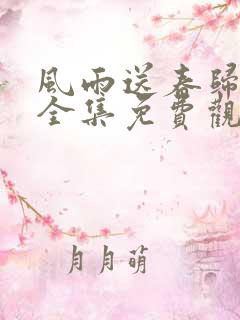 風雨送春歸
全集免費觀
月月萌